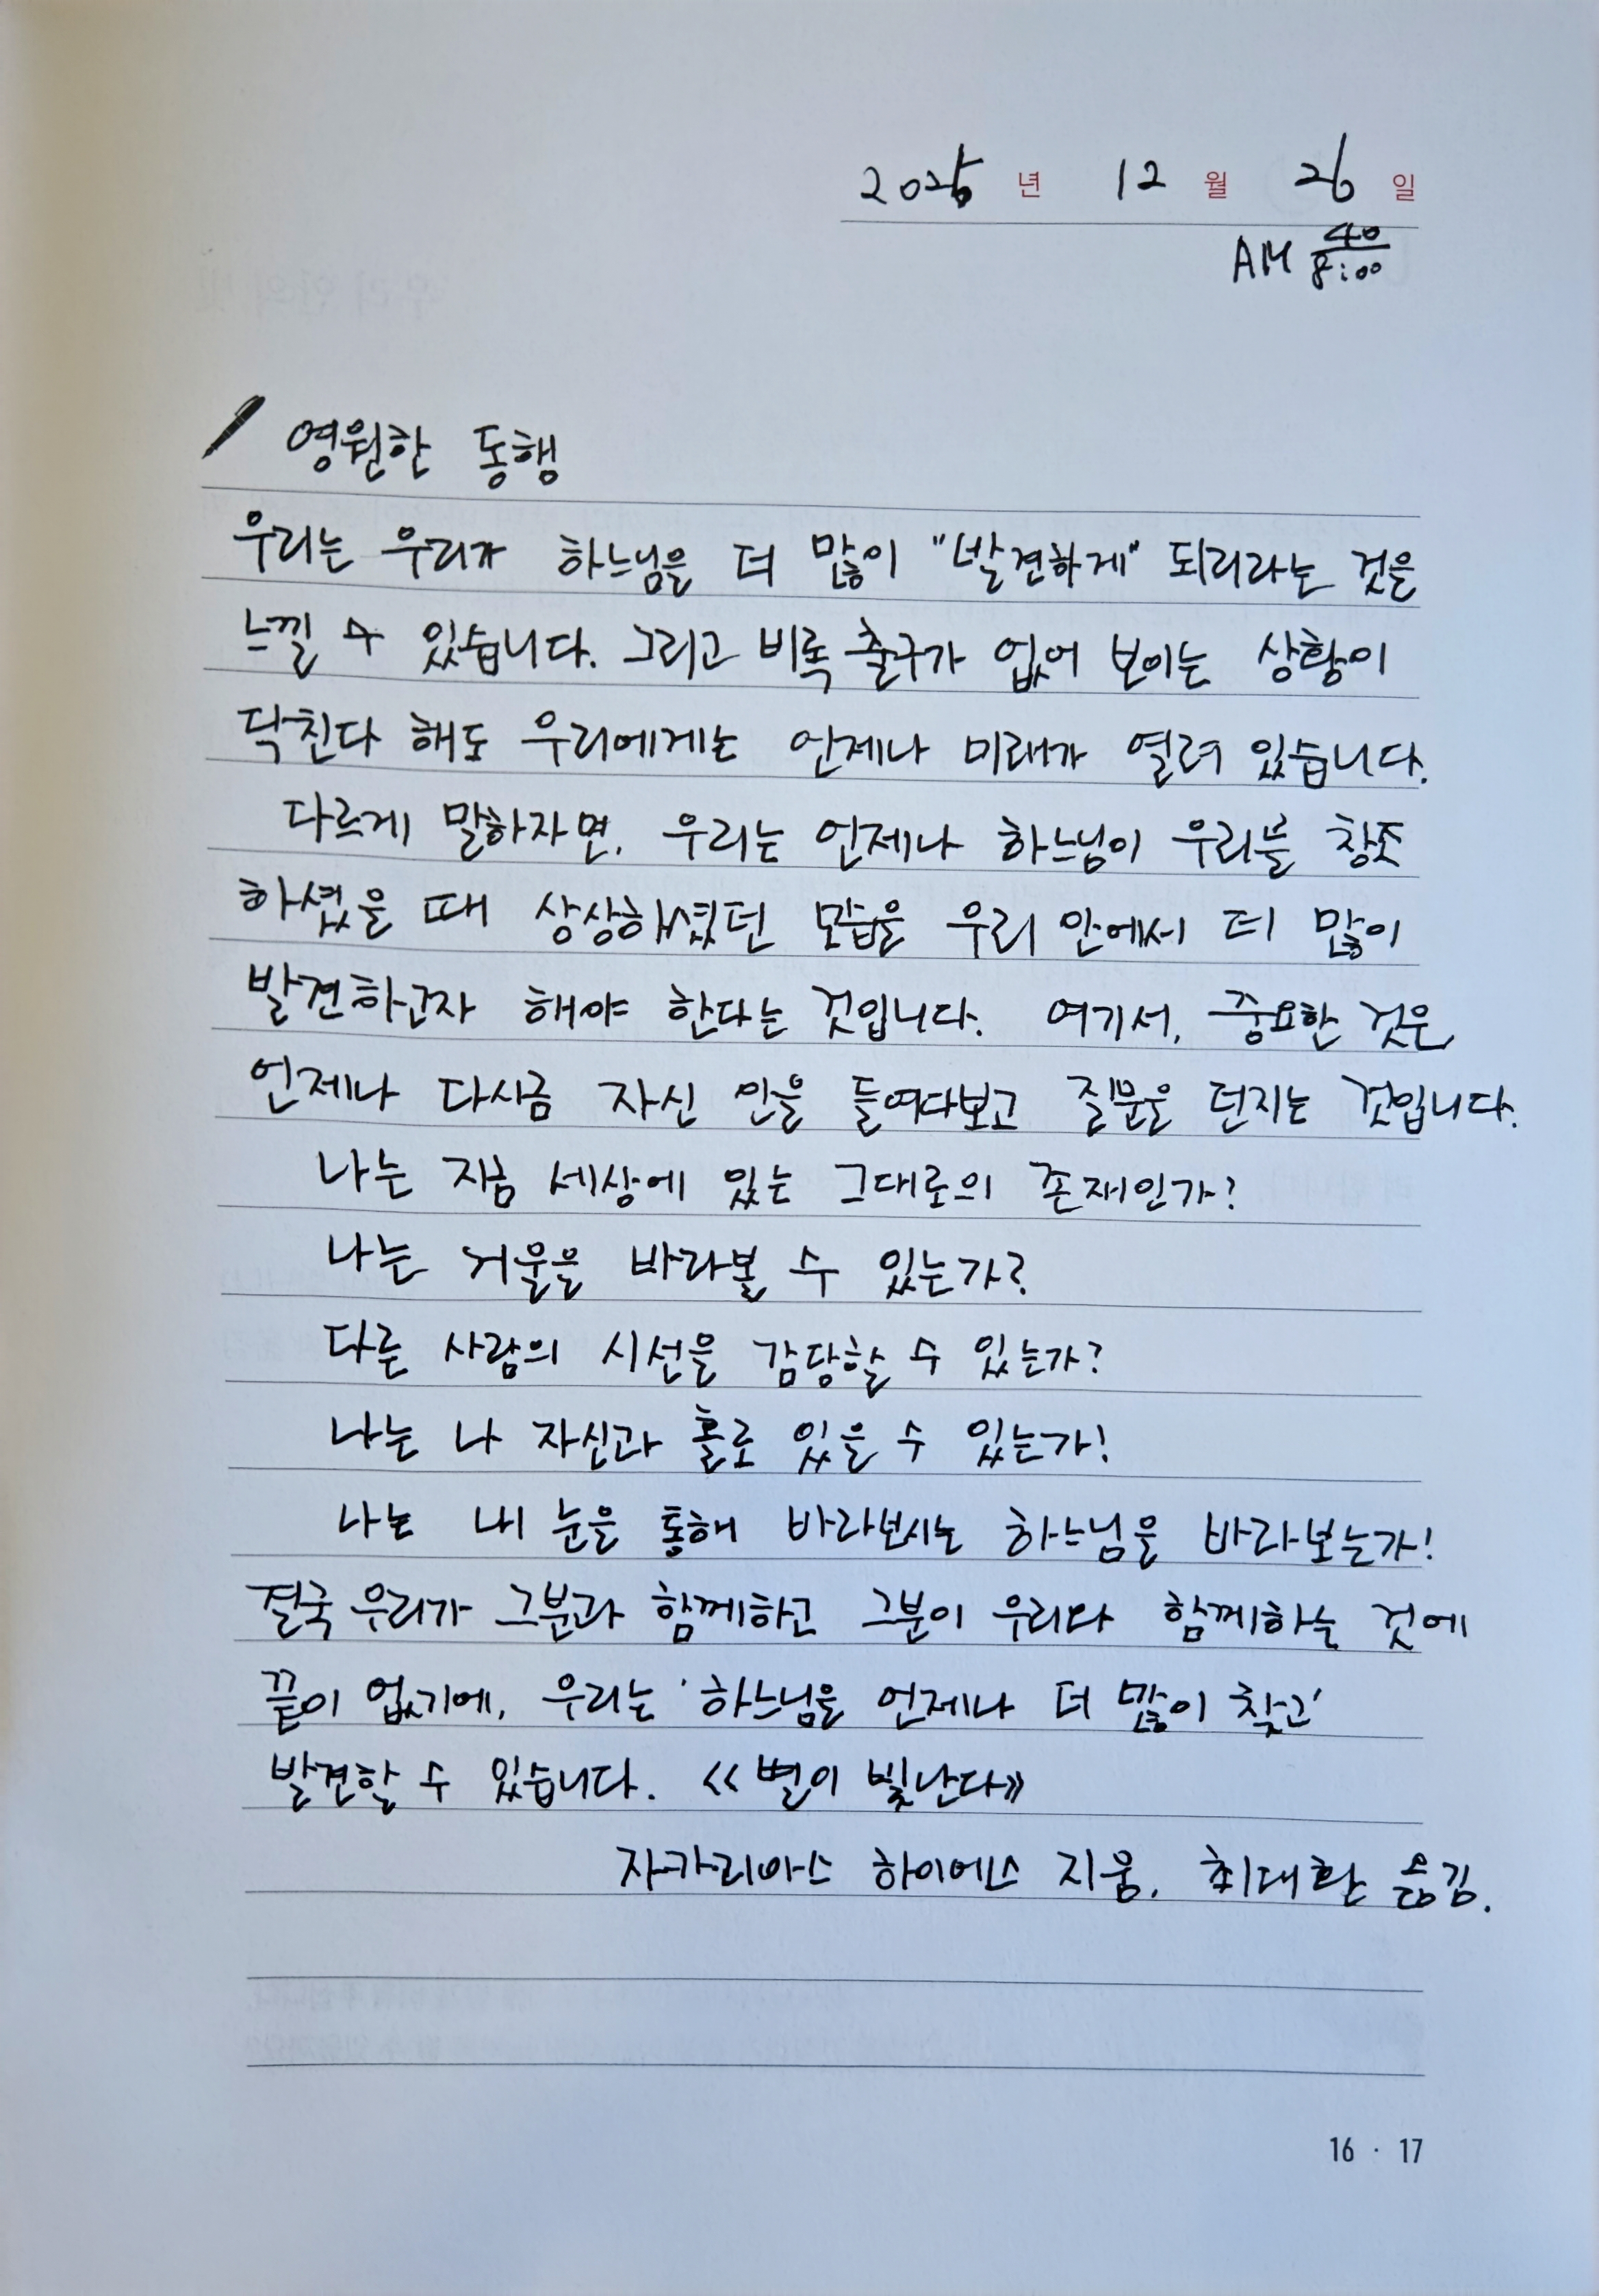 2025 년 12 월 26 일
AM 40
8:00
영원한 동행
우리는 우리가 하느님을 더 많이 "발견하게" 되리라는 것을
느낄 수 있습니다. 그리고 비록 출구가 없어 보이는 상황이
닥친다 해도 우리에게는 언제나 미래가 열려 있습니다.
다르게 말하자면, 우리는 언제나 하느님이 우리를 창조
하셨을 때 상상하셨던 모습을 우리 안에서 더 많이
발견하고자 해야 한다는 것입니다. 여기서, 중요한 것은
언제나 다시금 자신 안을 들여다보고 질문을 던지는 것입니다.
나는 지금 세상에 있는 그대로의 존재인가?
나는 거울을 바라볼 수 있는가?
다른 사람의 시선을 감당할 수 있는가?
나는 나 자신과 홀로 있을 수 있는가!
나는 내 눈을 통해 바라보시는 하느님을 바라보는가!
결국 우리가 그분과 함께하고 그분이 우리와 함께하는 것에
끝이 없기에, 우리는 '하느님을 언제나 더 많이 찾고'
발견할 수 있습니다. 《별이 빛난다》
자카리아스 하이에스 지움, 최대환 옮김.
16 · 17